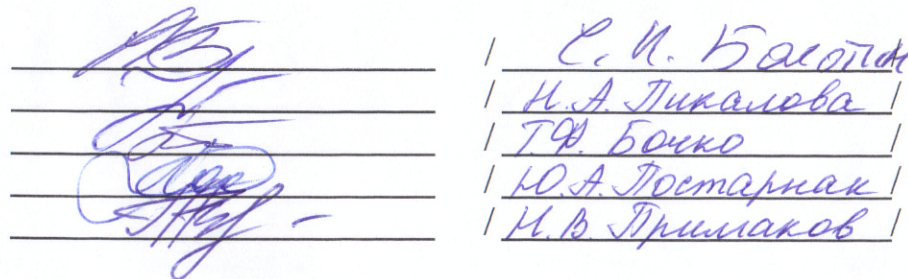 / С. И. Болотин
/ Н.А. Пикалова /
/ Т.Ф. Бочко /
/ Ю.А. Постарнак /
/ Н.В. Примаков /